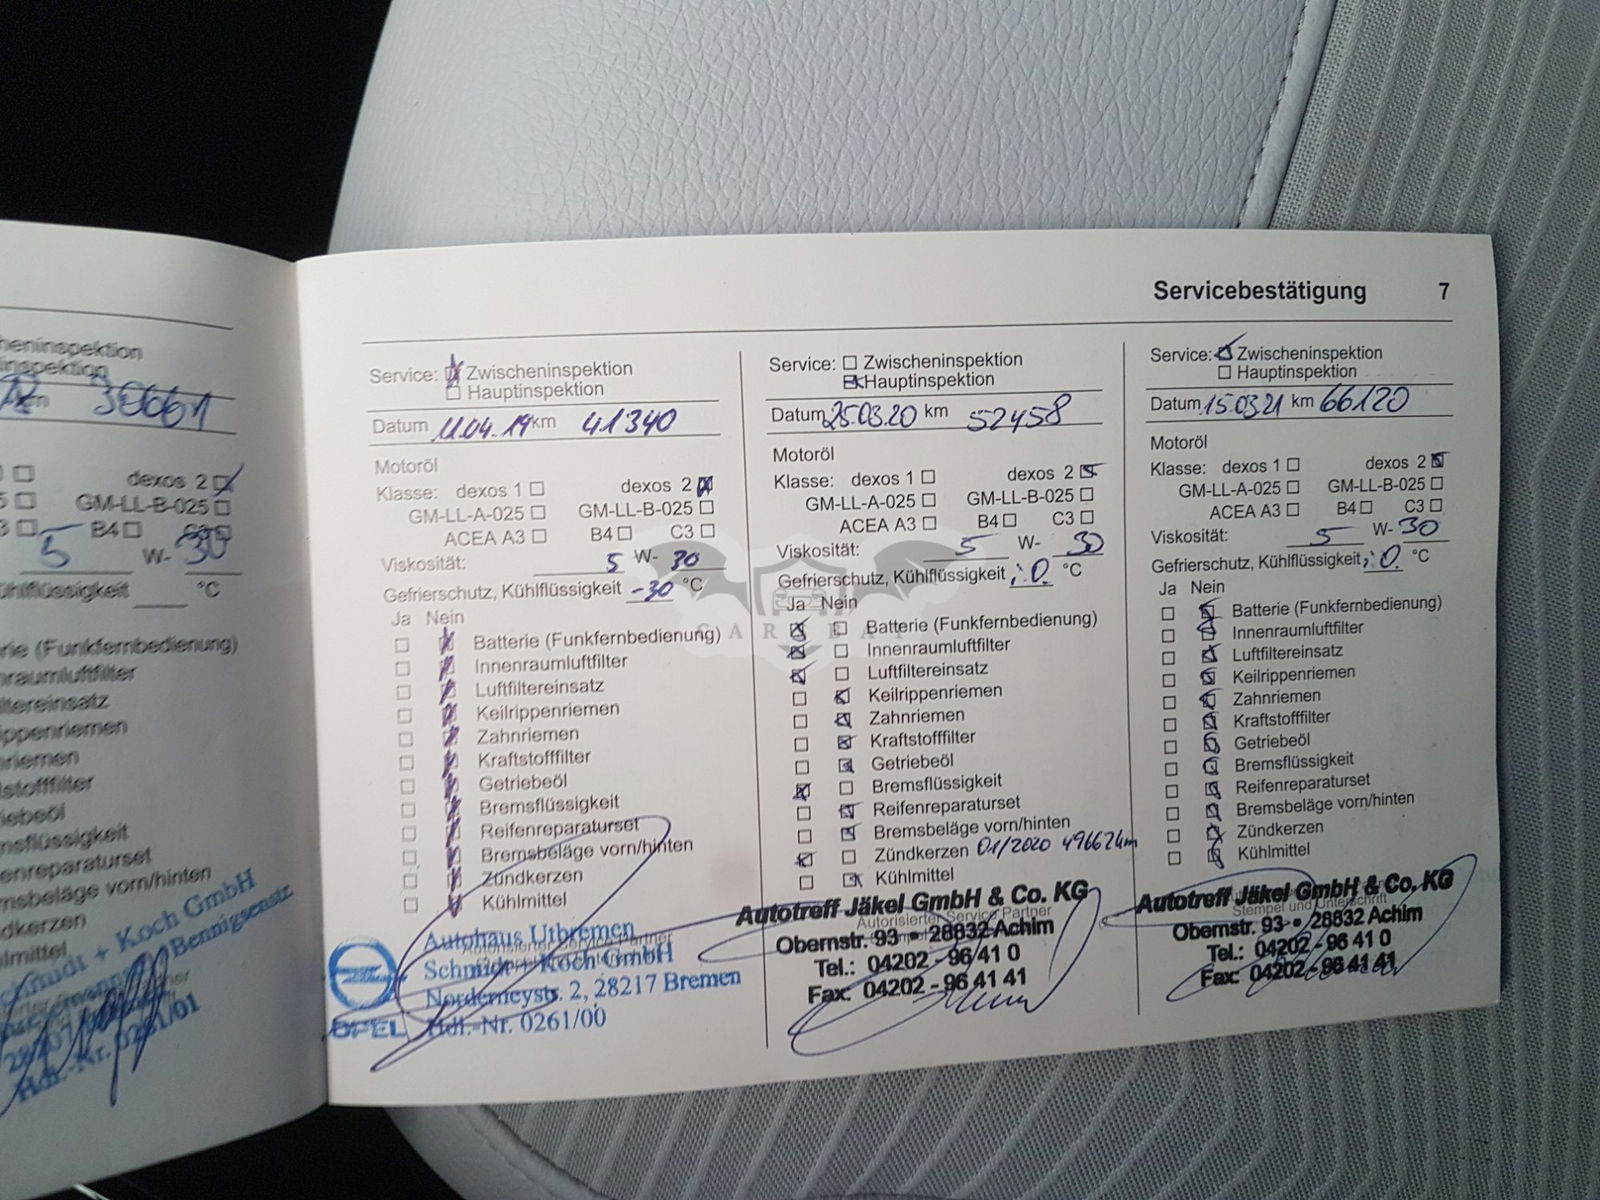 Servicebestätigung 7
heninspektion
inspektion
30661
dexos 2
GM-LL-B-025
B4
5 W- 30
ühlflüssigkeit °C
rie (Funkfernbedienung)
nraumluftfilter
ltereinsatz
ippenriemen
nriemen
stofffilter
iebeöl
nsflüssigkeit
enreparaturset
msbeläge vorn/hinten
dkerzen
lmittel
chmidt + Koch GmbH
Service: Zwischeninspektion
Hauptinspektion
Datum 11.04.19 km 41340
Motoröl
Klasse: dexos 1 dexos 2
GM-LL-A-025 GM-LL-B-025
ACEA A3 B4 C3
Viskosität: 5 W- 30
Gefrierschutz, Kühlflüssigkeit -30 °C
Ja Nein
Batterie (Funkfernbedienung)
Innenraumluftfilter
Luftfiltereinsatz
Keilrippenriemen
Zahnriemen
Kraftstofffilter
Getriebeöl
Bremsflüssigkeit
Reifenreparaturset
Bremsbeläge vorn/hinten
Zündkerzen
Kühlmittel
Autohaus Utbremen
Schmidt + Koch GmbH
Norderneystr. 2, 28217 Bremen
OPEL Hdl.-Nr. 0261/00
Service: Zwischeninspektion
Hauptinspektion
Datum 25.03.20 km 52458
Motoröl
Klasse: dexos 1 dexos 2
GM-LL-A-025 GM-LL-B-025
ACEA A3 B4 C3
Viskosität: 5 W- 30
Gefrierschutz, Kühlflüssigkeit i.O. °C
Ja Nein
Batterie (Funkfernbedienung)
Innenraumluftfilter
Luftfiltereinsatz
Keilrippenriemen
Zahnriemen
Kraftstofffilter
Getriebeöl
Bremsflüssigkeit
Reifenreparaturset
Bremsbeläge vorn/hinten
Zündkerzen 01/2020 49662km
Kühlmittel
Autotreff Jäkel GmbH & Co. KG
Autorisierter Service Partner
Obernstr. 93 • 28832 Achim
Tel.: 04202 - 96 41 0
Fax: 04202 - 96 41 41
Service: Zwischeninspektion
Hauptinspektion
Datum 15.03.21 km 66120
Motoröl
Klasse: dexos 1 dexos 2
GM-LL-A-025 GM-LL-B-025
ACEA A3 B4 C3
Viskosität: 5 W- 30
Gefrierschutz, Kühlflüssigkeit i.O. °C
Ja Nein
Batterie (Funkfernbedienung)
Innenraumluftfilter
Luftfiltereinsatz
Keilrippenriemen
Zahnriemen
Kraftstofffilter
Getriebeöl
Bremsflüssigkeit
Reifenreparaturset
Bremsbeläge vorn/hinten
Zündkerzen
Kühlmittel
Autotreff Jäkel GmbH & Co. KG
Stempel und Unterschrift
Obernstr. 93 • 28832 Achim
Tel.: 04202 - 96 41 0
Fax: 04202 - 96 41 41